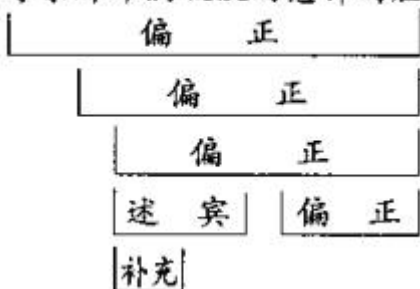 偏 正
偏 正
偏 正
述 宾 偏 正
补充